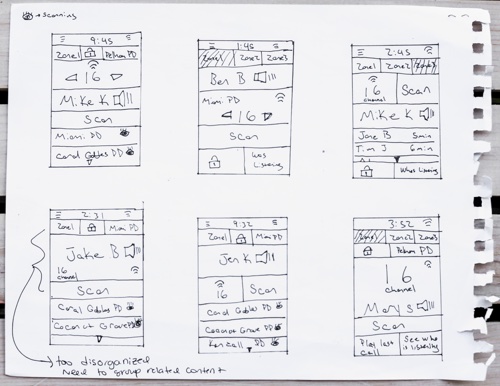 → scanning
9:45
Zone1 Pelham PD
16
Mike K
Scan
Miami DD
Coral Gables DD
1:45
Zone1 Zone2 Zone3
Ben B
Miami PD
16
Scan
Who's Listening
2:45
Zone1 Zone2
16 channel Scan
Mike K
Jane B 5min
Tim J 6min
Who's Listening
2:31
Zone1 Miami PD
Jake B
16 channel
Scan
Coral Gables PD
Coconut Grove PD
9:32
Zone1 Miami PD
Jen K
16 Scan
Coral Gables PD
Coconut Grove PD
PD
3:52
Zone2 Zone3
Pelham PD
16
channel
Mary S
Scan
Play last call
See who is listening
too disorganized
need to group related content